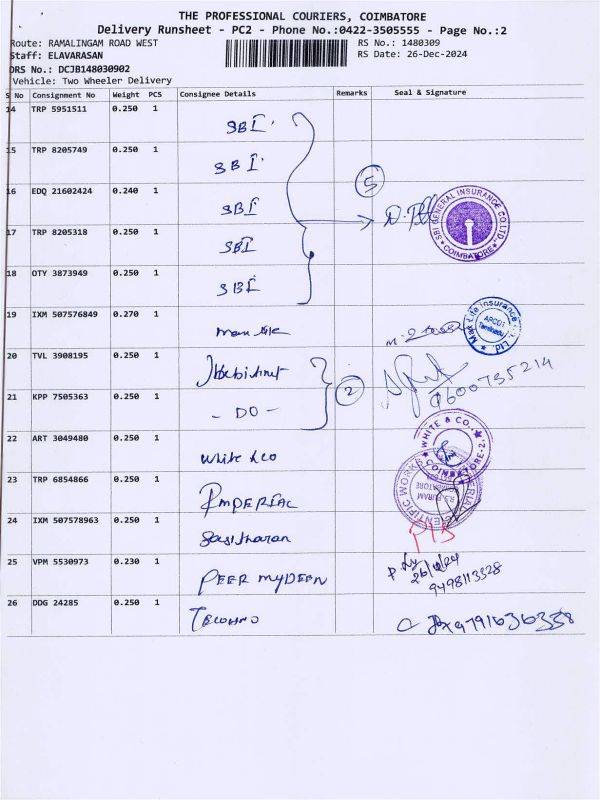 THE PROFESSIONAL COURIERS, COIMBATORE
Delivery Runsheet - PC2 - Phone No.:0422-3505555 - Page No.:2
Route: RAMALINGAM ROAD WEST
RS No.: 1480309
Staff: ELAVARASAN
RS Date: 26-Dec-2024
DRS No.: DCJB148030902
Vehicle: Two Wheeler Delivery
S No Consignment No Weight PCS Consignee Details Remarks Seal & Signature
14 TRP 5951511 0.250 1 SBI
15 TRP 8205749 0.250 1 SBI
16 EDQ 21602424 0.240 1 SBI
5
SBI GENERAL INSURANCE CO.LTD.
COIMBATORE
17 TRP 8205318 0.250 1 SBI
18 OTY 3873949 0.250 1 SBI
19 IXM 507576849 0.270 1
Max Life Insurance
Ltd.
Tamilnadu
20 TVL 3908195 0.250 1
9600735214
2
21 KPP 7505363 0.250 1 - DO -
22 ART 3049480 0.250 1 White & Co
WHITE & CO.,
COIMBATORE-2.
23 TRP 6854866 0.250 1 IMPERIAL
R.S. PURAM
24 IXM 507578963 0.250 1 Sasitharan
25 VPM 5530973 0.230 1 PEER MYDEEN
26/12/24
9498113328
26 DDG 24285 0.250 1